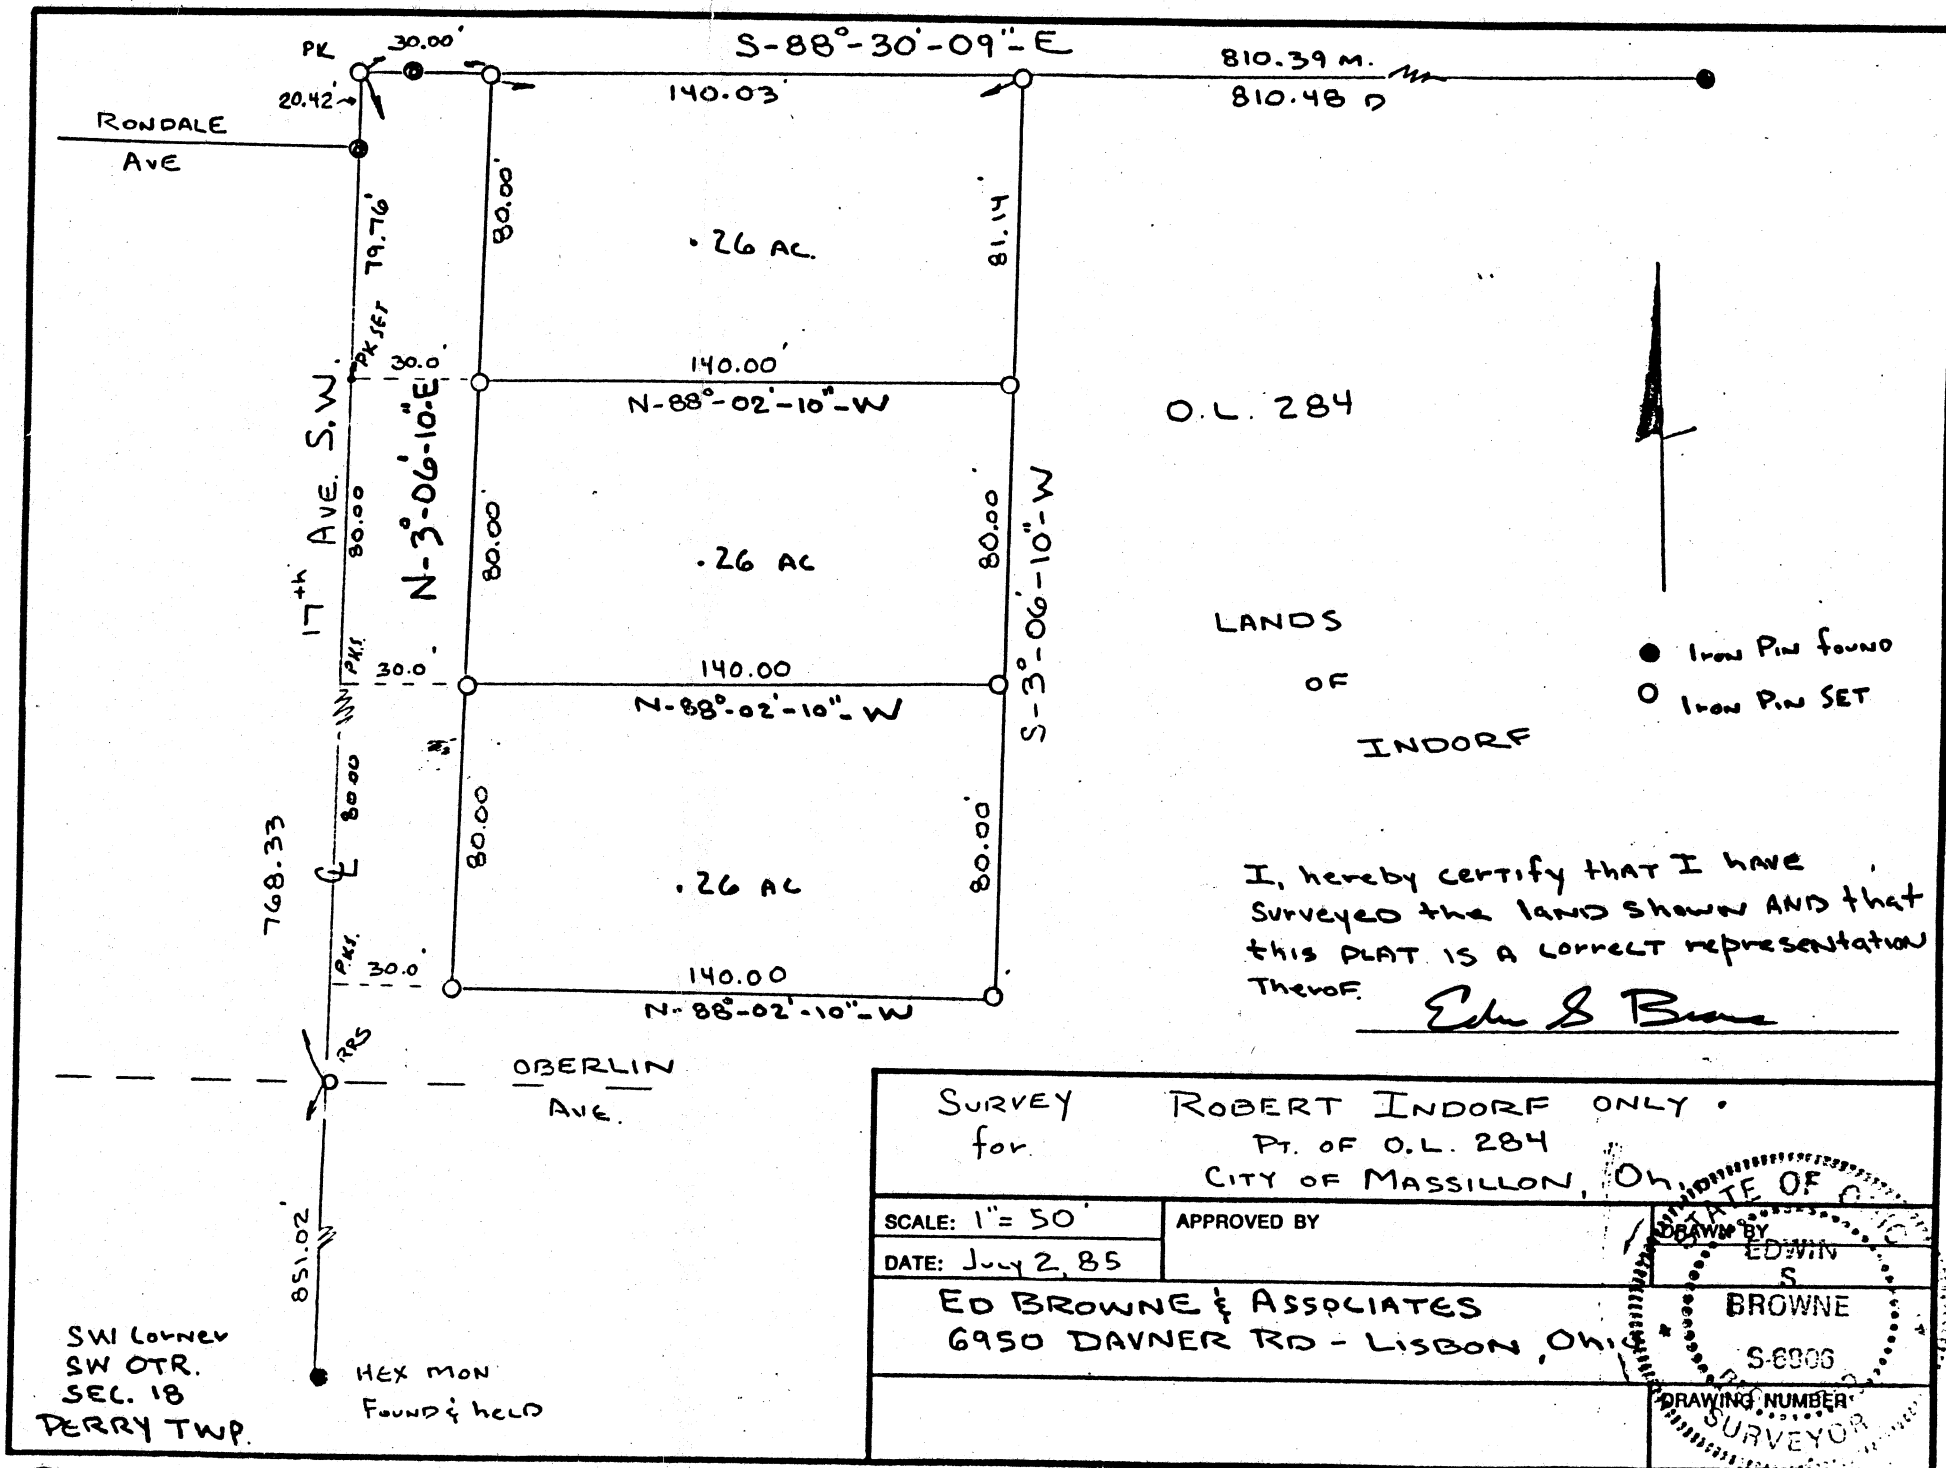 PK
30.00'
S-88°-30'-09"-E
810.39 M.
810.48 D
140.03'
20.42'
RONDALE
AVE
79.76'
80.00'
.26 AC.
81.14'
PK SET
30.0'
140.00'
N-88°-02'-10"-W
17th AVE. S.W.
80.00
N-3°-06'-10"-E
80.00'
.26 AC
80.00'
S-3°-06'-10"-W
O.L. 284
LANDS
OF
INDORF
Iron Pin found
Iron Pin SET
P.K.S.
30.0'
140.00
N-88°-02'-10"-W
80.00
768.33
80.00
.26 AC
80.00'
P.K.S.
30.0'
140.00'
N-88°-02'-10"-W
RRS
OBERLIN
AVE.
851.02'
I, hereby certify that I have
surveyed the land shown AND that
this PLAT IS A correct representation
Therof.
Edwin S Browne
SW Corner
SW QTR.
SEC. 18
PERRY TWP.
HEX MON
Found & held
SURVEY for ROBERT INDORF ONLY.
PT. OF O.L. 284
CITY OF MASSILLON, Oh.
SCALE: 1"= 50'
DATE: July 2, 85
APPROVED BY
DRAWN BY
ED BROWNE & ASSOCIATES
6950 DAVNER RD - LISBON, Ohio
DRAWING NUMBER
STATE OF OHIO
EDWIN
S
BROWNE
S-6906
SURVEYOR